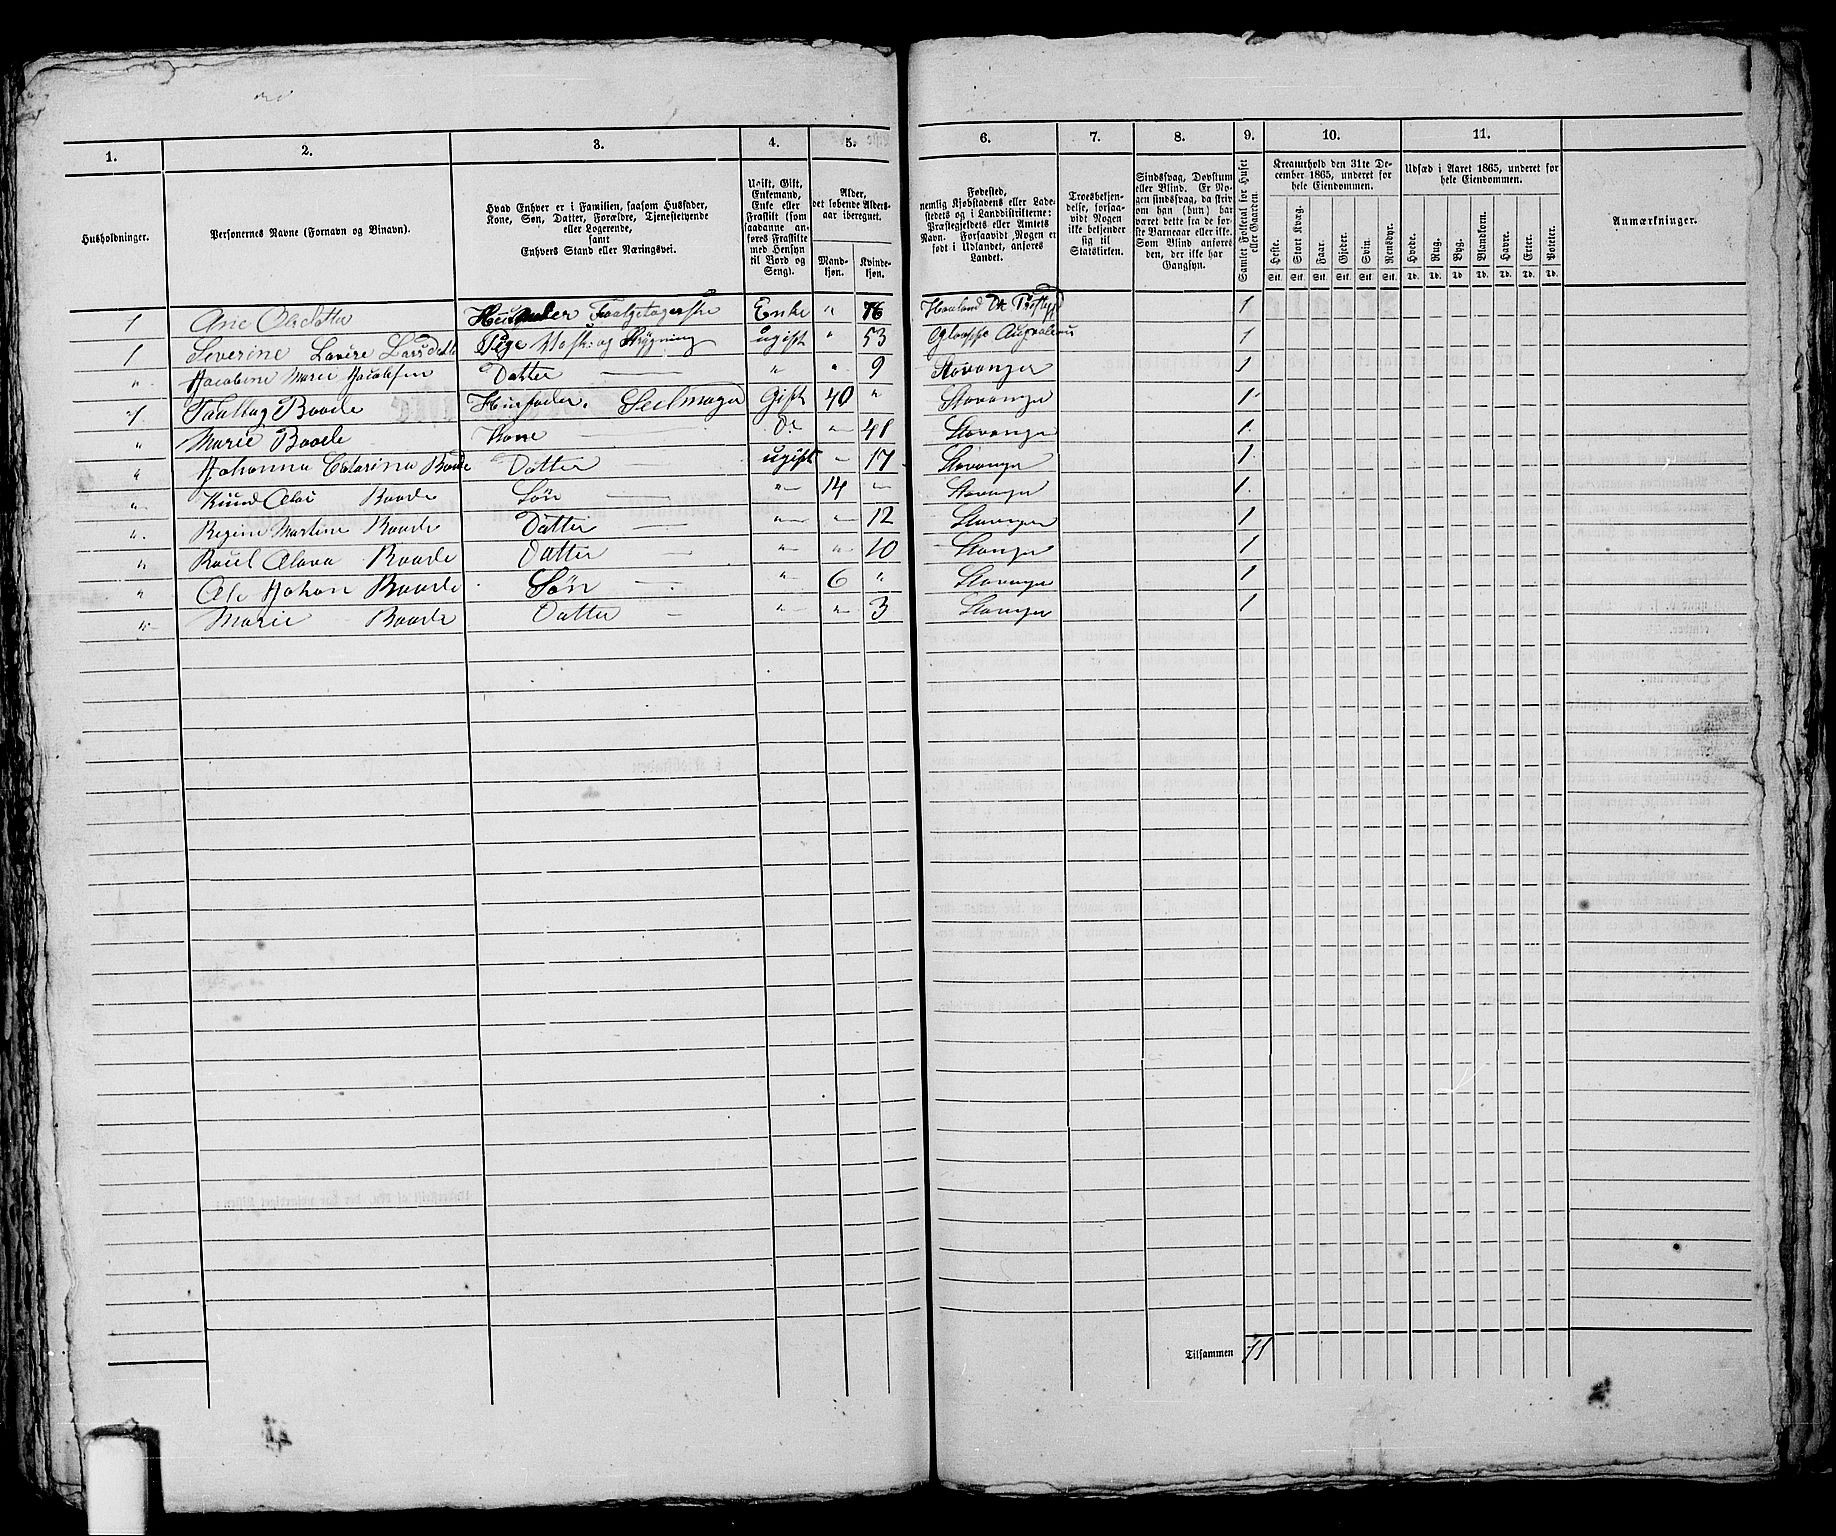 1. 2. 3. 4. 5. 6. 7. 8. 9. 10. 11.
Husholdninger.
Personernes Navne (Fornavn og Binavn).
Hvad Enhver er i Familien, saasom Husfader,
Kone, Søn, Datter, Forældre, Tjenestetyende
eller Logerende,
samt
Enhvers Stand eller Næringsvei.
Ugift, Gift,
Enkemand,
Enke eller
Fraskilt (som
saadanne an-
føres Fraskilte
med Hensyn
til Bord og
Seng).
Alder,
det løbende Alders-
aar iberegnet.
Mand-
kjøn.
Kvinde-
kjøn.
Fødested,
nemlig Kjøbstadens eller Lade-
stedets og i Landdistrikterne:
Præstegjeldets eller Amtets
Navn. Forsaavidt Nogen er
født i Udlandet, anføres
Landet.
Troesbekjen-
delse, forsaa-
vidt Nogen
ikke bekjender
sig til
Statskirken.
Sindssvag, Døvstum
eller Blind. Er No-
gen sindssvag, da skriv
om han (hun) har
været dette fra de før-
ste Barneaar eller ikke.
Som Blind anføres
den, der ikke har
Gangsyn.
Samlet Folketal for Huset
eller Gaarden.
Kreaturhold den 31te De-
cember 1865, underet for
hele Eiendommen.
Heste. Stort Kvæg. Faar. Gjeder. Svin. Rensdyr.
Stk. Stk. Stk. Stk. Stk. Stk.
Udsæd i Aaret 1865, underet for
hele Eiendommen.
Hvede. Rug. Byg. Blandkorn. Havre. Erter. Poteter.
Td. Td. Td. Td. Td. Td. Td.
Anmærkninger.
1 Ane Olsdatter Enke " 76 1
1 Severine Lavire Larsdatter Pige Vask: og Strygning ugift " 53 1
" Jacobine Marie Jacobsen Datter " " 9 Stavanger 1
1 Baade Husfader. Seilmager Gift 40 " Stavanger 1
" Marie Baade Kone Do " 41 Stavanger 1
" Johanna Catarina Baade Datter ugift " 17 Stavanger 1
" Knud Olai Baade Søn " 14 " Stavanger 1
" Regine Martine Baade Datter " " 12 Stavanger 1
" Olava Baade Datter " " 10 Stavanger 1
" Ole Johan Baade Søn " 6 " Stavanger 1
" Marie Baade Datter " " 3 Stavanger 1
Tilsammen 11